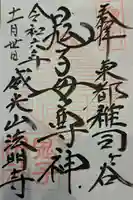 奉拝 東都雑司ヶ谷
鬼子母尊神
威光山法明寺
令和六年
十一月廿日